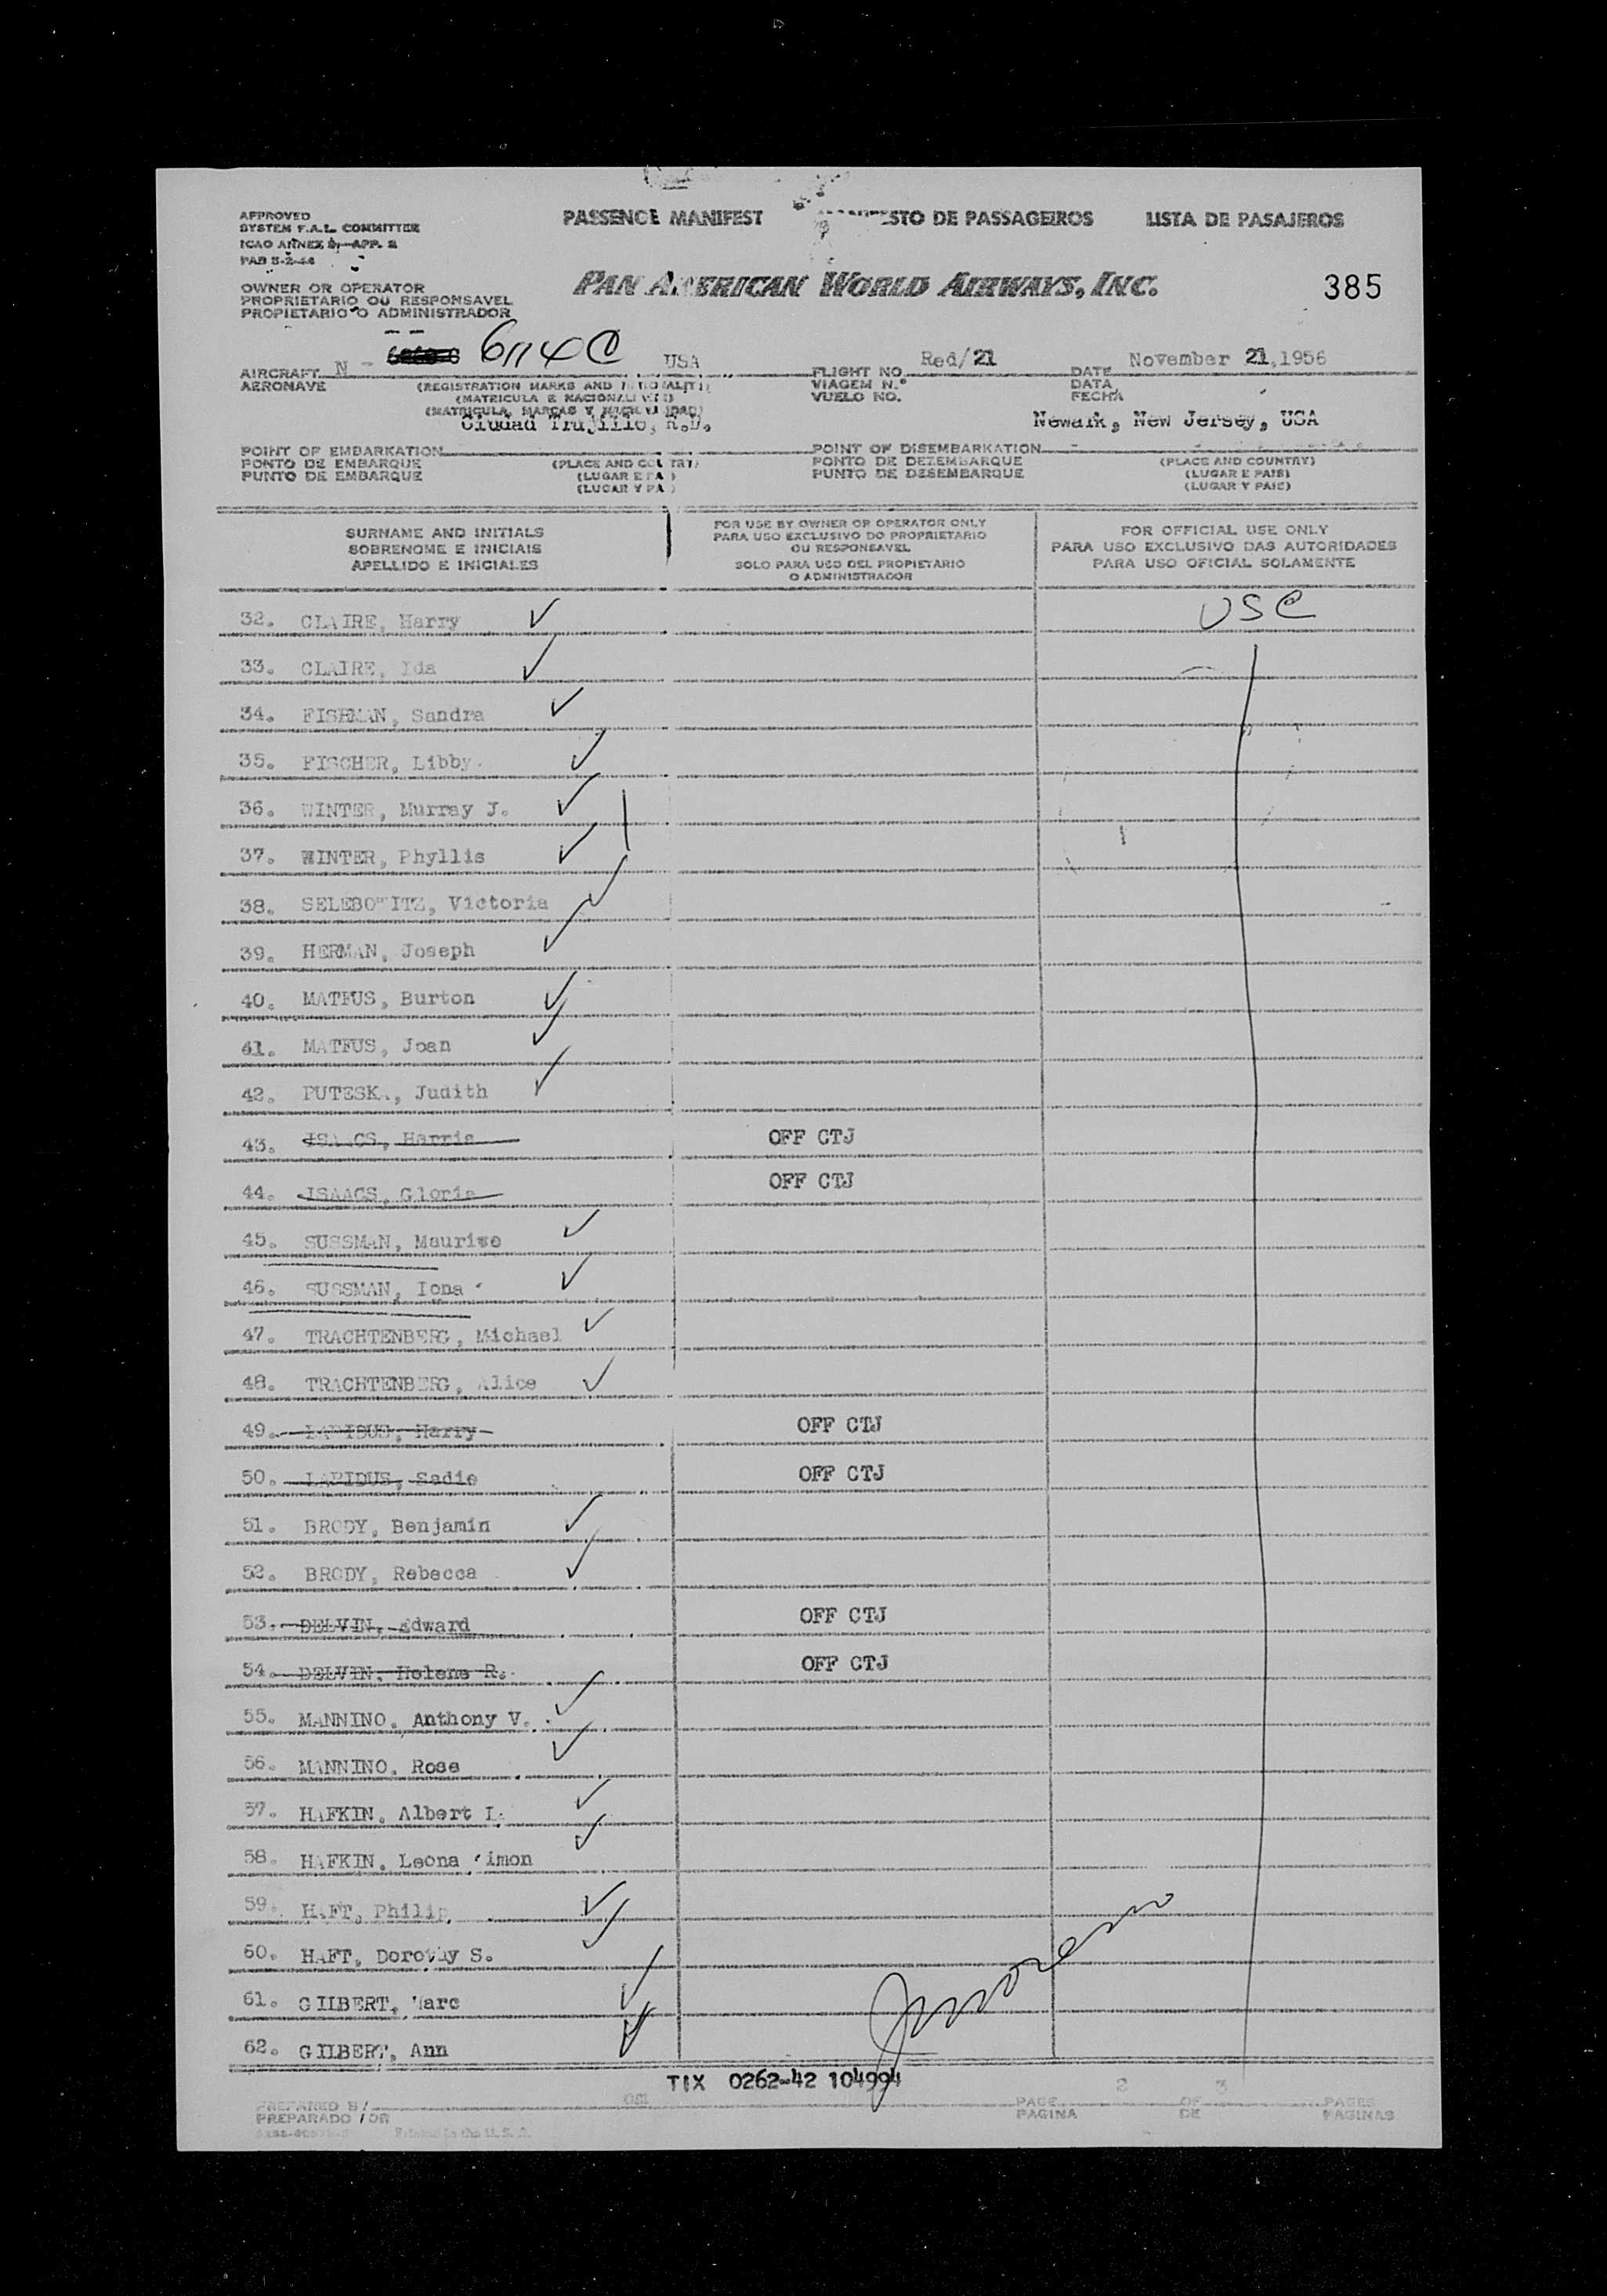 APPROVED
SYSTEM F.A.L. COMMITTEE
ICAO ANNEX 9, APP. 2
PASSENGE MANIFEST STO DE PASSAGEIROS LISTA DE PASAJEROS
OWNER OR OPERATOR
PROPRIETARIO OU RESPONSAVEL
PROPIETARIO O ADMINISTRADOR
PAN AMERICAN WORLD AIRWAYS, INC.
385
AIRCRAFT N - 6114C USA FLIGHT NO. Red/21 DATE November 21, 1956
AERONAVE (REGISTRATION MARKS AND NATIONALITY) VIAGEM N.º DATA
(MATRICULA E NACIONALIDADE) VUELO NO. FECHA
(MATRICULA, MARCAS Y NACIONALIDAD)
Ciudad Trujillo, R.D. Newark, New Jersey, USA
POINT OF EMBARKATION POINT OF DISEMBARKATION
PONTO DE EMBARQUE (PLACE AND COUNTRY) PONTO DE DEZEMBARQUE (PLACE AND COUNTRY)
PUNTO DE EMBARQUE (LUGAR E PA ) PUNTO DE DESEMBARQUE (LUGAR E PAIS)
(LUGAR Y PA ) (LUGAR Y PAIS)
SURNAME AND INITIALS
SOBRENOME E INICIAIS
APELLIDO E INICIALES
FOR USE BY OWNER OR OPERATOR ONLY
PARA USO EXCLUSIVO DO PROPRIETARIO
OU RESPONSAVEL
SOLO PARA USO DEL PROPIETARIO
O ADMINISTRADOR
FOR OFFICIAL USE ONLY
PARA USO EXCLUSIVO DAS AUTORIDADES
PARA USO OFICIAL SOLAMENTE
32. CLAIRE, Harry USC
33. CLAIRE, Ida
34. FISHMAN, Sandra
35. FISCHER, Libby
36. WINTER, Murray J.
37. WINTER, Phyllis
38. SELEBOWITZ, Victoria
39. HERMAN, Joseph
40. MATFUS, Burton
41. MATFUS, Joan
42. PUTESKA, Judith
43. ISAACS, Harris OFF CTJ
44. ISAACS, Gloria OFF CTJ
45. SUSSMAN, Maurice
46. SUSSMAN, Iona
47. TRACHTENBERG, Michael
48. TRACHTENBERG, Alice
49. LAPIDUS, Harry OFF CTJ
50. LAPIDUS, Sadie OFF CTJ
51. BRODY, Benjamin
52. BRODY, Rebecca
53. DELVIN, Edward OFF CTJ
54. DELVIN, Helene R. OFF CTJ
55. MANNINO, Anthony V.
56. MANNINO, Rose
57. HAFKIN, Albert I.
58. HAFKIN, Leona imon
59. HAFT, Philip
60. HAFT, Dorothy S.
61. GILBERT, Marc
62. GILBERT, Ann
TIX 0262-42 104994
PREPARED BY PAGE 2 OF 3 PAGES
PREPARADO POR PAGINA DE PAGINAS
Printed in the U.S.A.